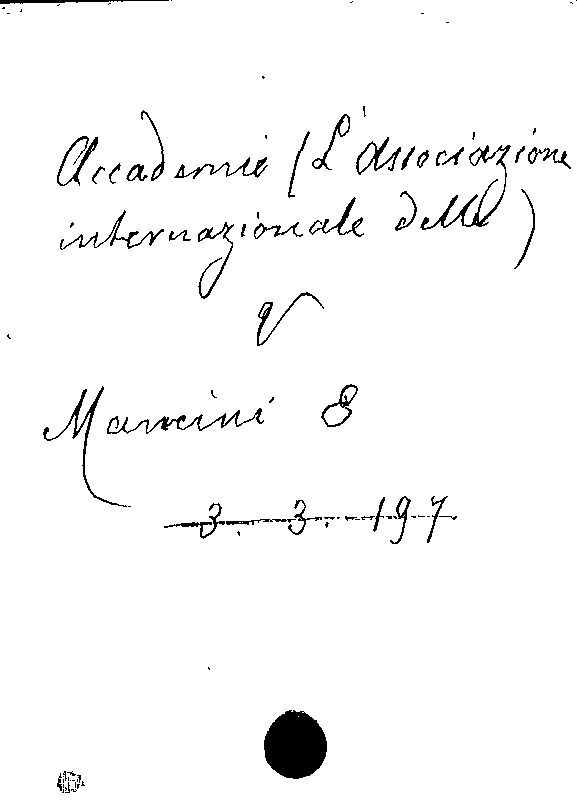 Accademie (L'associazione
internazionale delle)
V
Mancini E
3. 3. 197